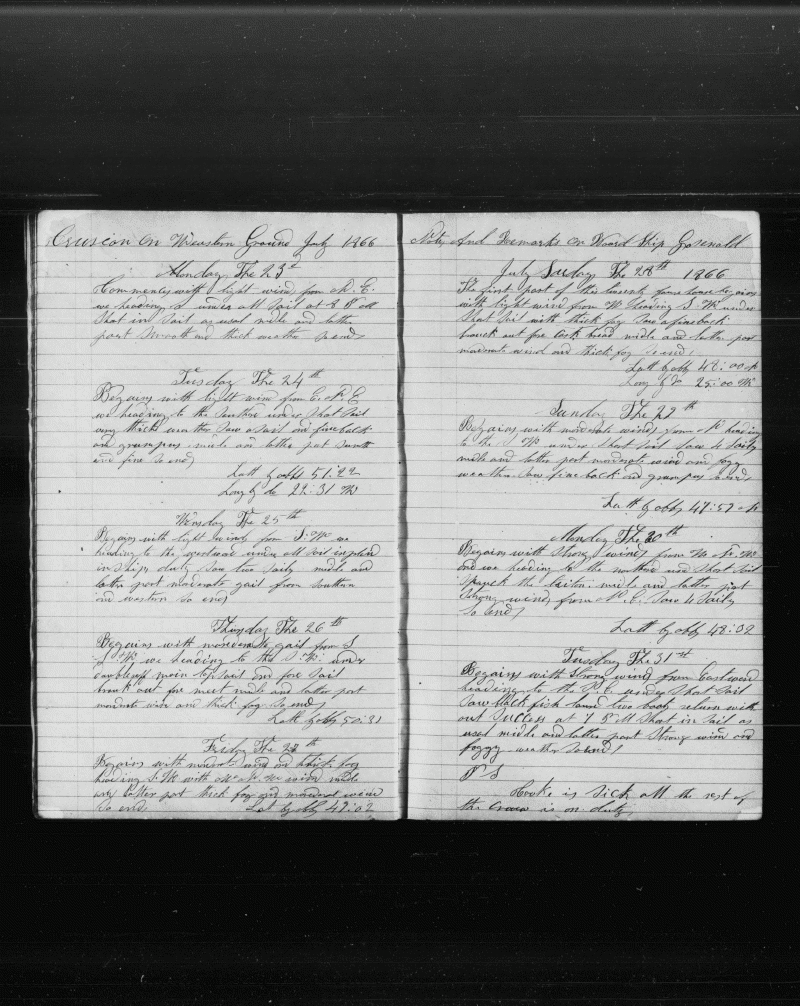 Cruseon On Western Ground July 1866
Monday The 23rd
Commences with light wind from N. E.
we heading S under all Sail at 8 P M
Short in Sail as usal midle and latter
part Smooth and thick weather So ends
Tuesday The 24th
Begains with light wind from E. N. E
we heading to the under Short Sail
very thick weather Saw a Sail and fineback
and grampus midle and latter part Smooth
and fine So ends
Latt by obb 51:22
Long by do 29:31 W
Wensday The 25th
Begains with light winds from S. W we
heading to the under all Sail
in Ships duty Saw two Sails midle and
latter part moderate gail from Southern
and western So ends
Thusday The 26th
Begains with moderate gail from S
S. W we heading to the S. W. under
main top Sail and fore Sail
brock out for meet midle and latter part
moderate wind and thick fog So ends
Latt by obb 50:31
Friday The 27th
Begains with moderate wind and thick fog
heading S. W with N. W wind midle
and latter part thick fog and moderate wind
So ends Lat by obb 49:02
Notes And Remarks On Board Ship Gosnald
July The 28th 1866
The first part of this begains
with light wind from W heading S. W under
Short Sail with thick fog Saw a fineback
brock out for bread midle and latter part
moderate wind and thick fog So ends
Latt by obb 48:00 N
Long by do 25:00 W
Sunday The 29th
Begains with moderate winds from N heading
to the S W under Short Sail Saw 4 Sails
midle and latter part moderate wind and fogy
weather Saw fineback and grampus So ends
Latt by obb 47:57 N
Monday The 30th
Begains with Strong winds from W. N. W.
and we heading to the northard under Short Sail
Speack the midle and latter part
Strong winds from N. E. Saw 4 Sails
So ends
Latt by obb 48:02
Tuesday The 31st
Begains with Strong winds from Eastward
heading to the under Short Sail
Saw black fish lowed two boats return with
out Success at 7 P M Short in Sail as
usal midle and latter part Strong wind and
foggy weather So ends
P S
Cooke is Sick all the rest of
the Crew is on duty